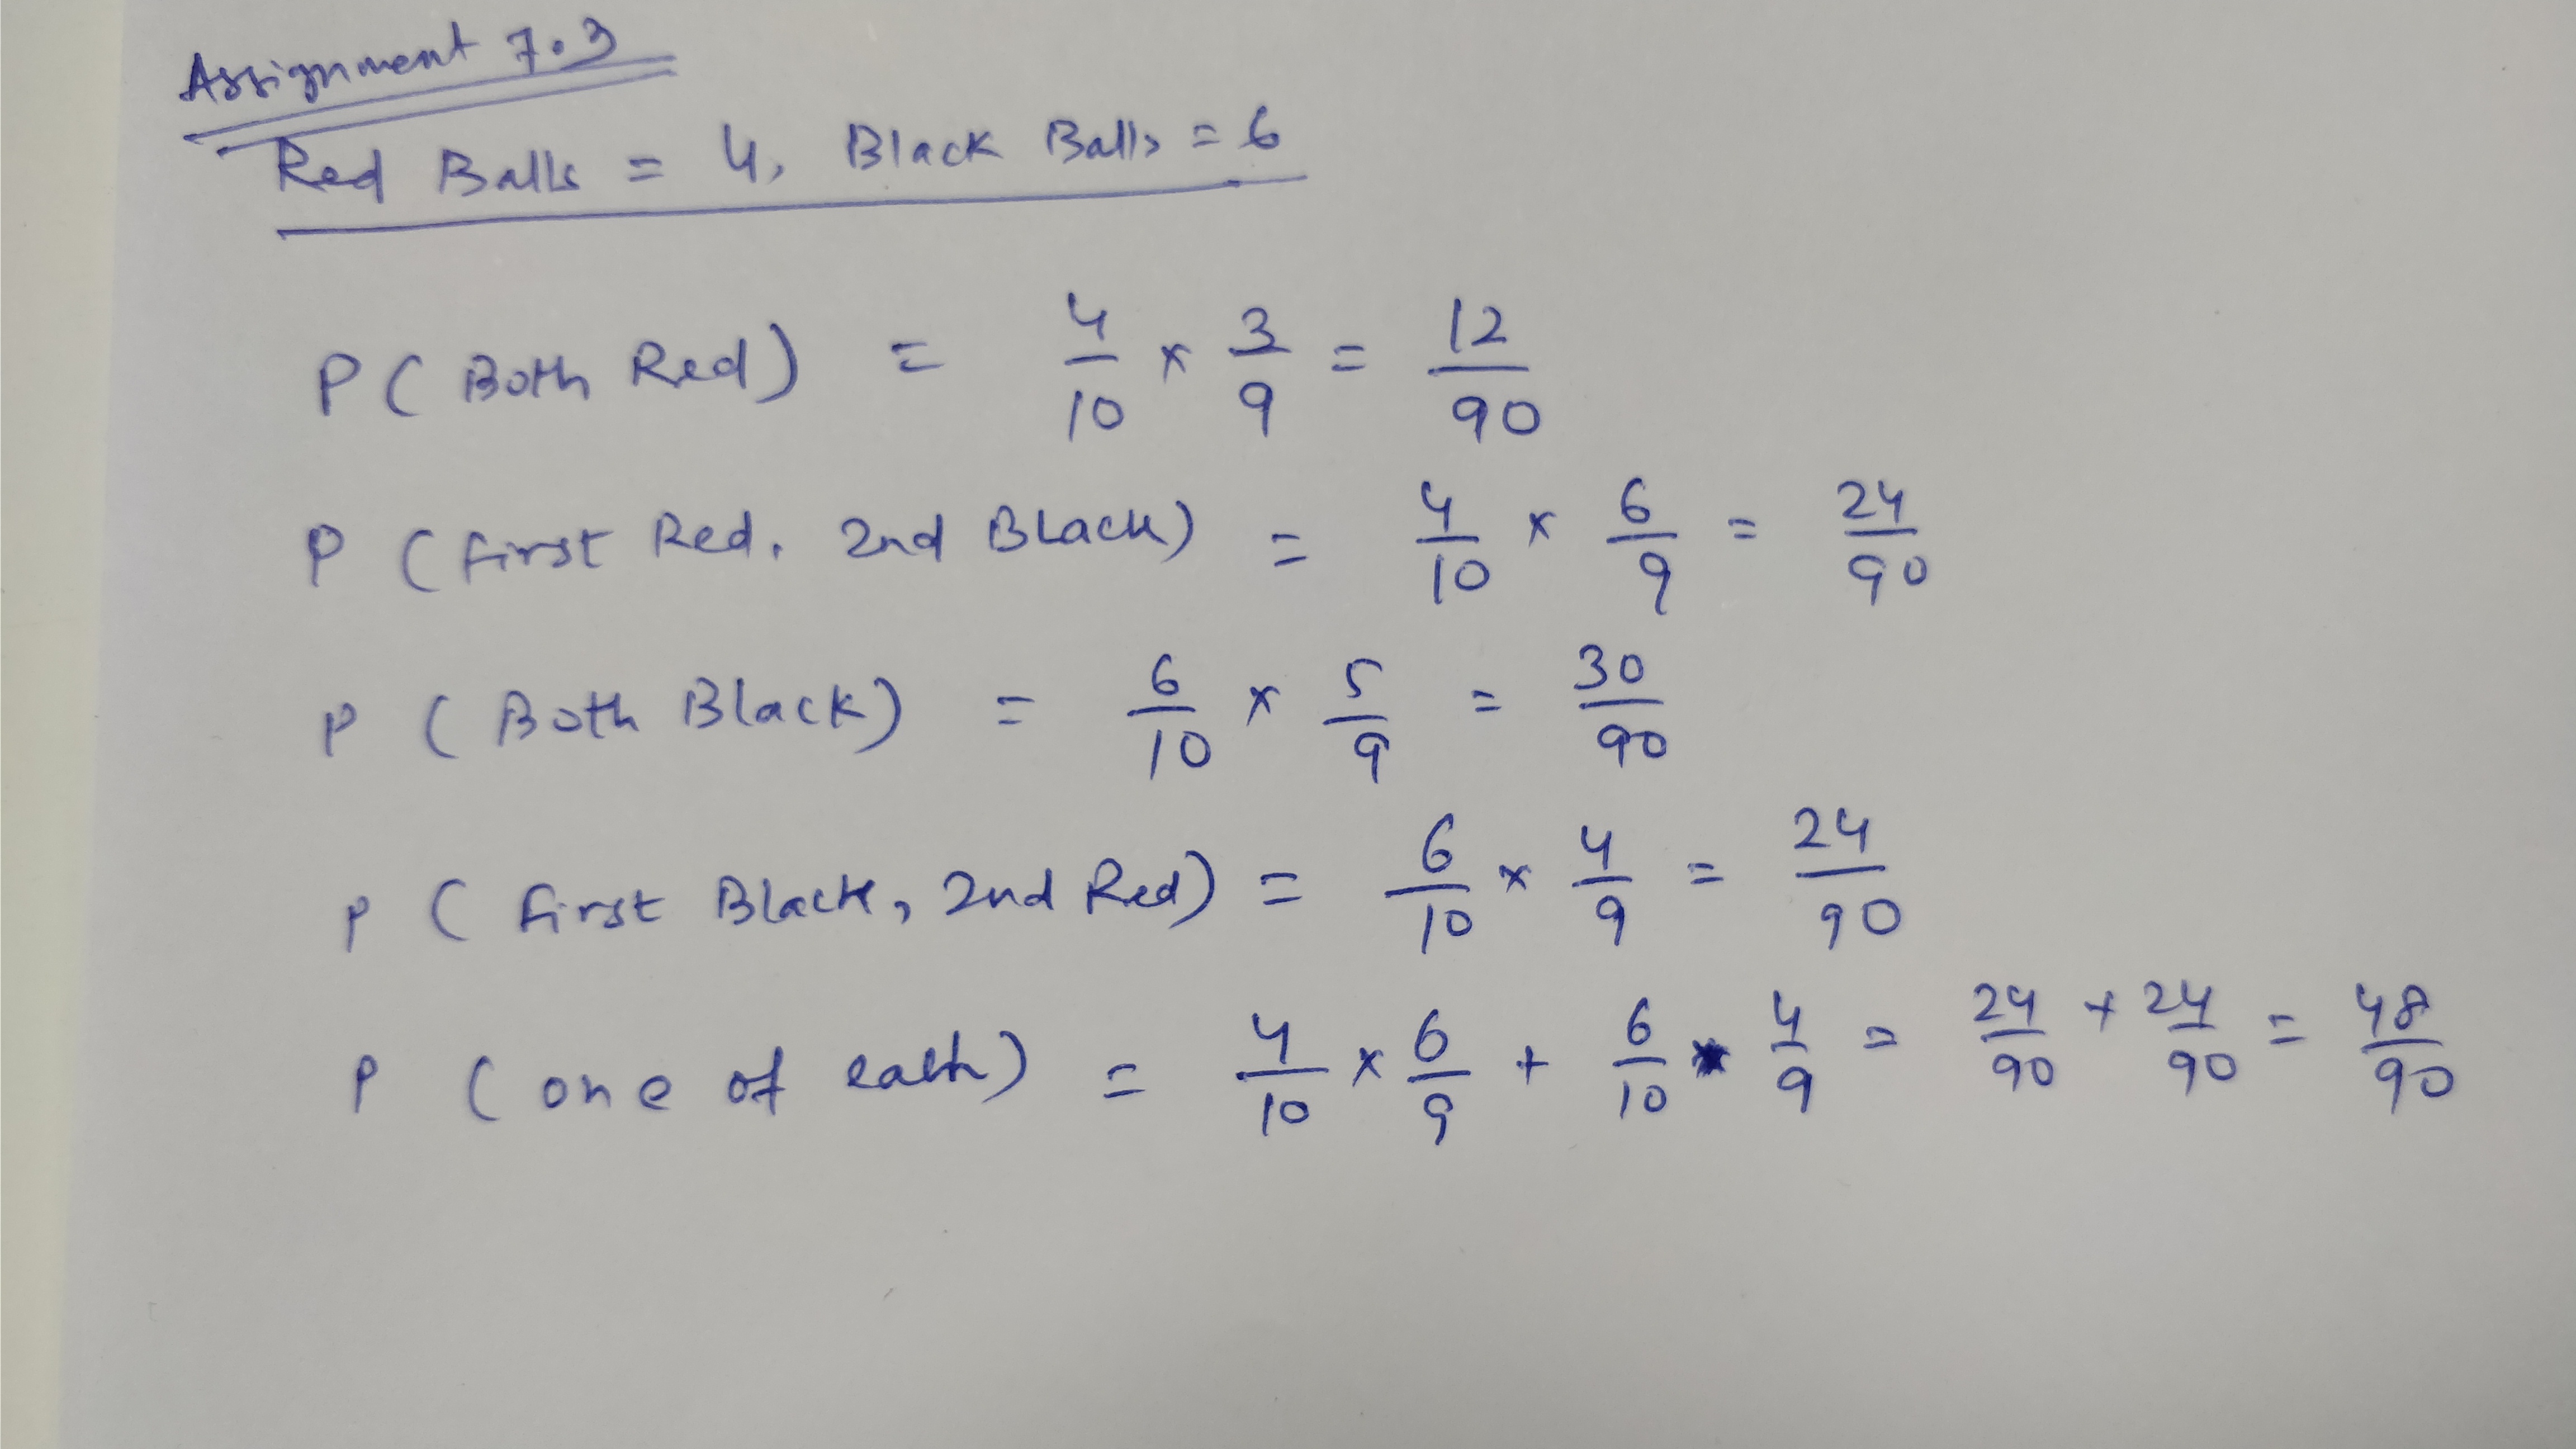 Assignment 7.3
Red Balls = 4, Black Balls = 6
P ( Both Red ) = 4/10 × 3/9 = 12/90
P ( first Red, 2nd Black) = 4/10 × 6/9 = 24/90
P ( Both Black) = 6/10 × 5/9 = 30/90
P ( first Black, 2nd Red) = 6/10 × 4/9 = 24/90
P ( one of each) = 4/10 × 6/9 + 6/10 × 4/9 = 24/90 + 24/90 = 48/90